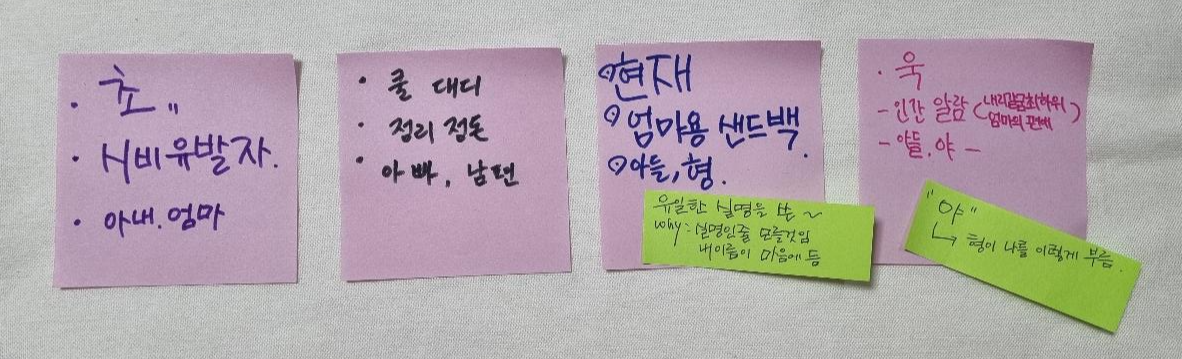 · 초"
· 시비유발자.
· 아내.엄마
· 쿨 대디
· 정리 정돈
· 아빠, 남편
현재
엄마용 샌드백.
아들, 형.
유일한 실명을 씀 ~
why: 실명인줄 모를것임
내이름이 마음에 듬
· 욱
- 인간 알람 (내리갈굼최하위
엄마의
- 아들, 야 -
"야"
↳ 형이 나를 이렇게 부름.